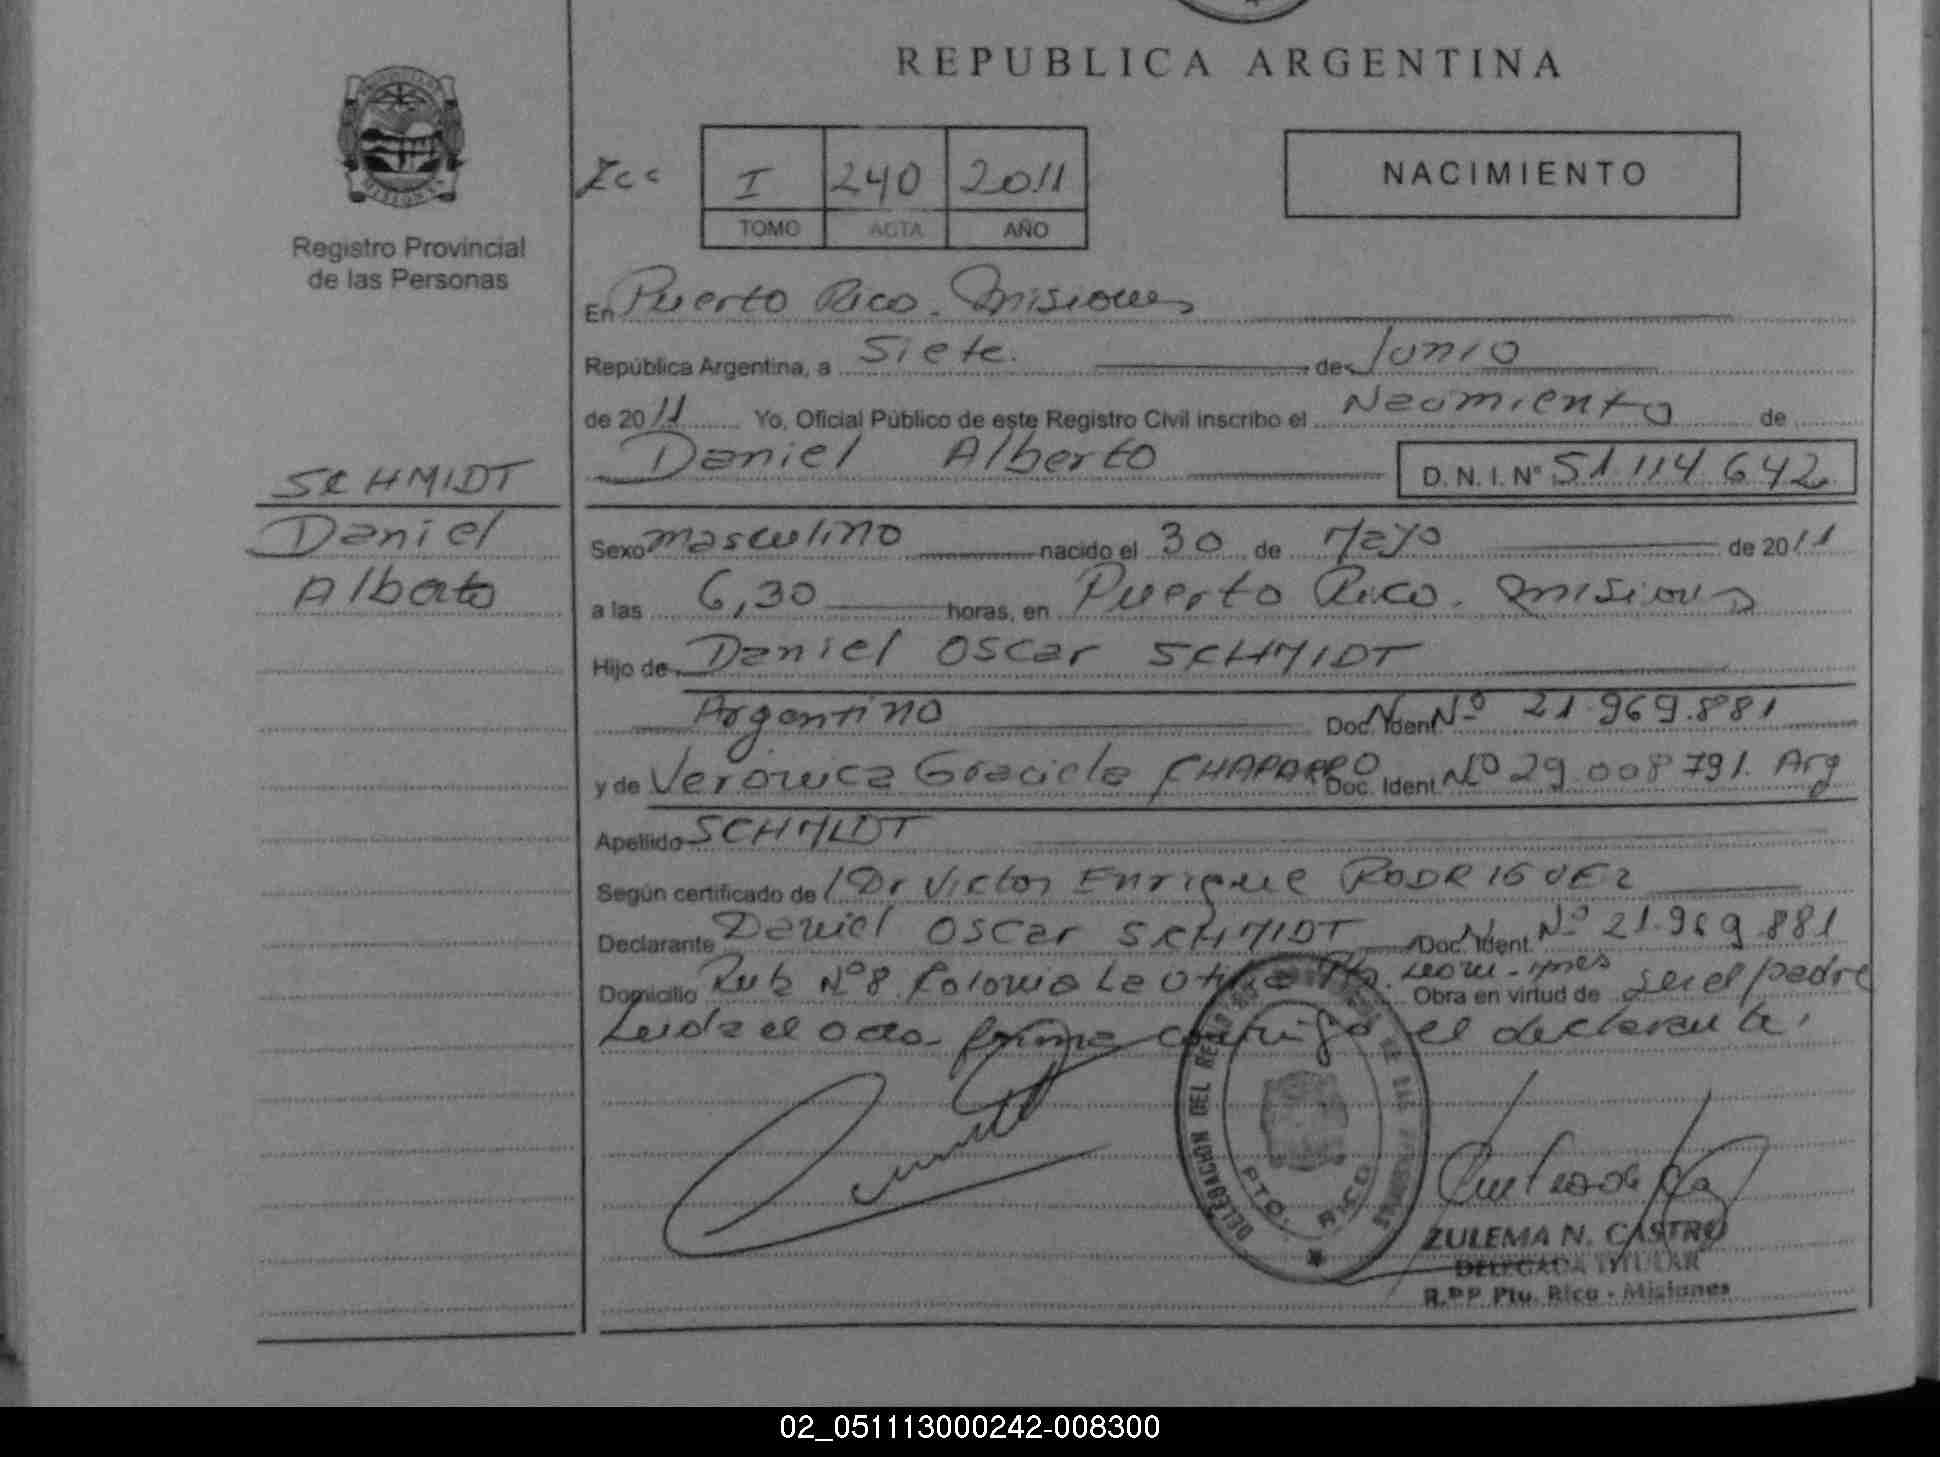 REPUBLICA ARGENTINA
NACIMIENTO
I 240 2011
TOMO ACTA AÑO
Registro Provincial
de las Personas
En Puerto Rico. Misiones
República Argentina, a Siete. de Junio
de 2011 Yo, Oficial Público de este Registro Civil inscribo el Nacimiento de
Daniel Alberto D. N. I. N° 51.114.642
SCHMIDT
Daniel
Alberto
Sexo masculino nacido el 30 de Mayo de 2011
a las 6,30 horas, en Puerto Rico. Misiones
Hijo de Daniel Oscar SCHMIDT
Argentino Doc. Ident. Nº 21.969.881
y de Veronica Graciela CHAPARRO Doc. Ident. Nº 29.008.791. Arg
Apellido SCHMIDT
Según certificado de Dr Victor Enrique RODRIGUEZ
Declarante Daniel Oscar SCHMIDT Doc. Ident. Nº 21.969.881
Domicilio Ruta Nº8 Colonia La Obra en virtud de ser el padre
Leida el acta firma conmigo el declarante.
DELEGACION DEL REGISTRO DE LAS PERSONAS
PTO. RICO
ZULEMA N. CASTRO
DELEGADA TITULAR
R.PP Pto. Rico - Misiones
02_051113000242-008300